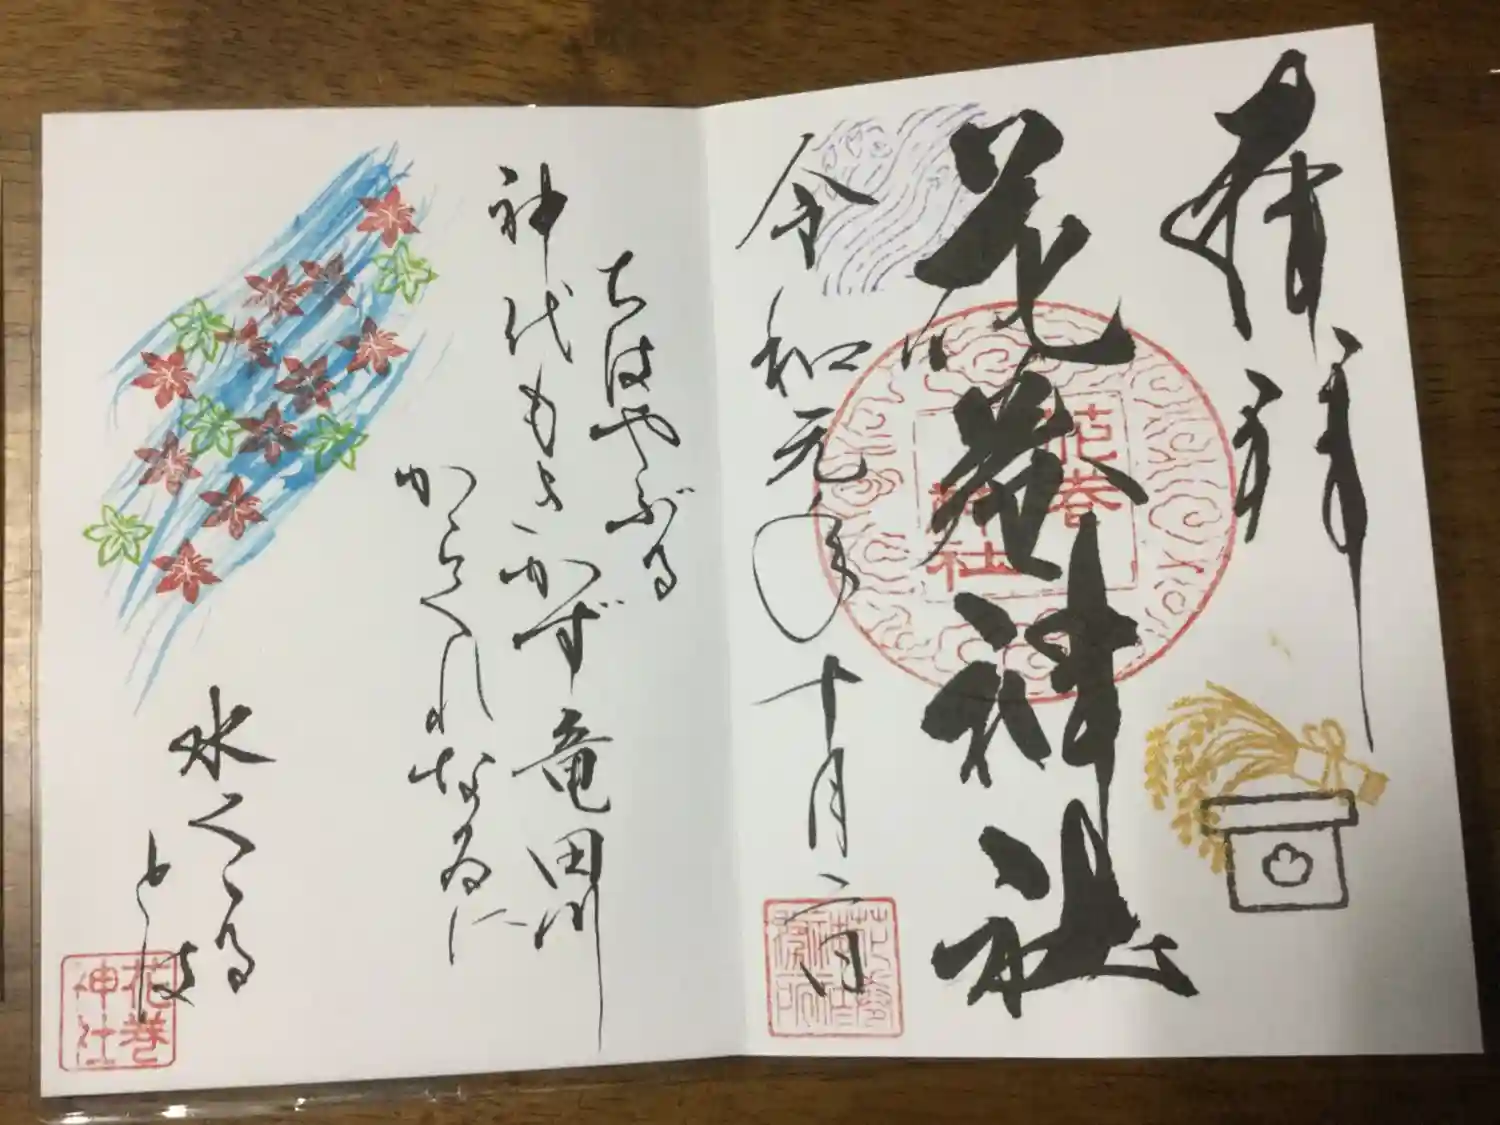 拝拝
花巻神社
令和元年十月二日
花巻神社
花巻神社務所
ちはやぶる
神代もきかず竜田川
からくれなゐに
水くゝる
とは
花巻神社